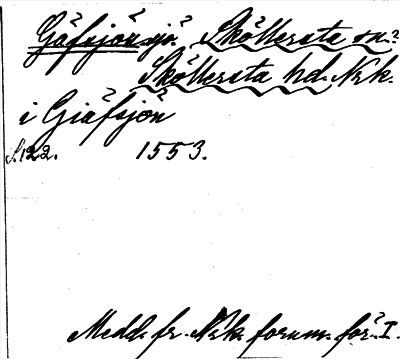 Gåfsjön sjö? Sköllersta sn.?
Sköllersta hd. Nrk.
i Giåfsjön
S. 122. 1553.
Medd. fr. Nrk. fornm. för. I.